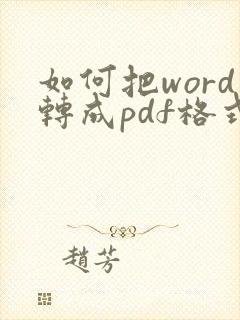 如何把word
轉成pdf格式
趙芳